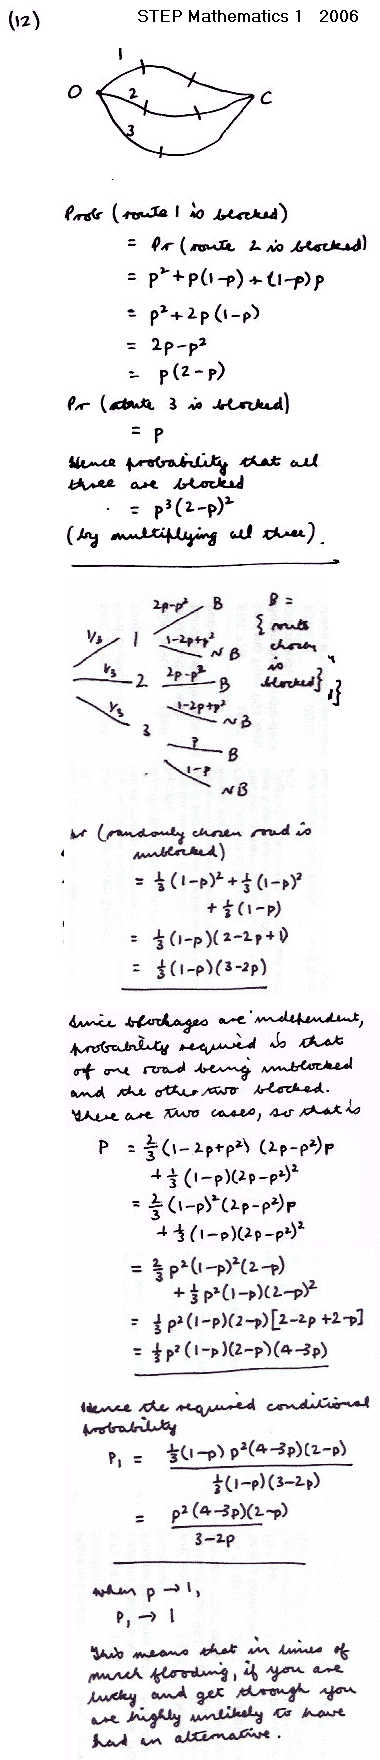 (12)
STEP Mathematics 1 2006
1
O 2 C
3
Prob (route 1 is blocked)
= Pr (route 2 is blocked)
= p² + p(1-p) + (1-p)p
= p² + 2p(1-p)
= 2p - p²
= p(2-p)
Pr (route 3 is blocked)
= p
Hence probability that all
three are blocked
= p³(2-p)²
(by multiplying all three).
2p-p² B
1/3 1 1-2p+p² ~B
1/3 2 2p-p² B
1-2p+p² ~B
1/3 3 p B
1-p ~B
B =
{route
chosen
is
blocked}
Pr (randomly chosen road is
unblocked)
= ⅓(1-p)² + ⅓(1-p)²
+ ⅓(1-p)
= ⅓(1-p)(2-2p+1)
= ⅓(1-p)(3-2p)
Since blockages are independent,
probability required is that
of one road being unblocked
and the other two blocked.
There are two cases, so that is
P = ⅔(1-2p+p²)(2p-p²)p
+ ⅓(1-p)(2p-p²)²
= ⅔(1-p)²(2p-p²)p
+ ⅓(1-p)(2p-p²)²
= ⅔p²(1-p)²(2-p)
+ ⅓p²(1-p)(2-p)²
= ⅓p²(1-p)(2-p)[2-2p+2-p]
= ⅓p²(1-p)(2-p)(4-3p)
Hence the required conditional
probability
P₁ = ⅓(1-p)p²(4-3p)(2-p)
⅓(1-p)(3-2p)
= p²(4-3p)(2-p)
3-2p
when p → 1,
P₁ → 1
This means that in times of
much flooding, if you are
lucky and get through you
are highly unlikely to have
had an alternative.